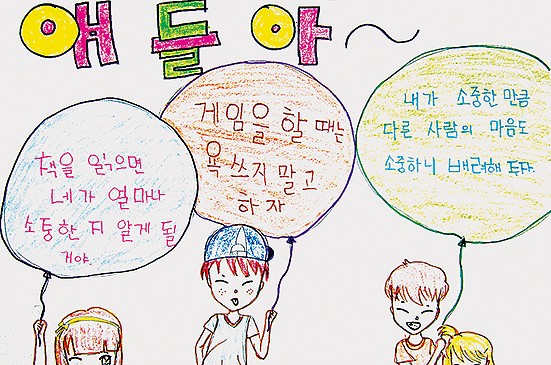 얘들아~
책을 읽으면
네가 얼마나
소중한 지 알게 될
거야
게임을 할 때는
욕 쓰지 말고
하자
내가 소중한 만큼
다른 사람의 마음도
소중하니 배려해 두자.